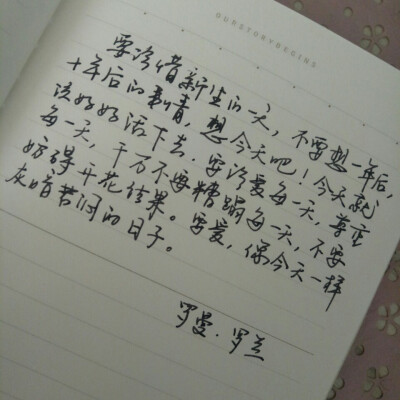 OURSTORYBEGINS
要珍惜新生的一天，不要想一年后，
十年后的事情，想今天吧！今天就
该好好活下去，要珍爱每一天，尊重
每一天，千万不要糟蹋每一天，不要
妨碍开花结果。要爱，像今天一样
灰暗苦闷的日子。
罗曼·罗兰